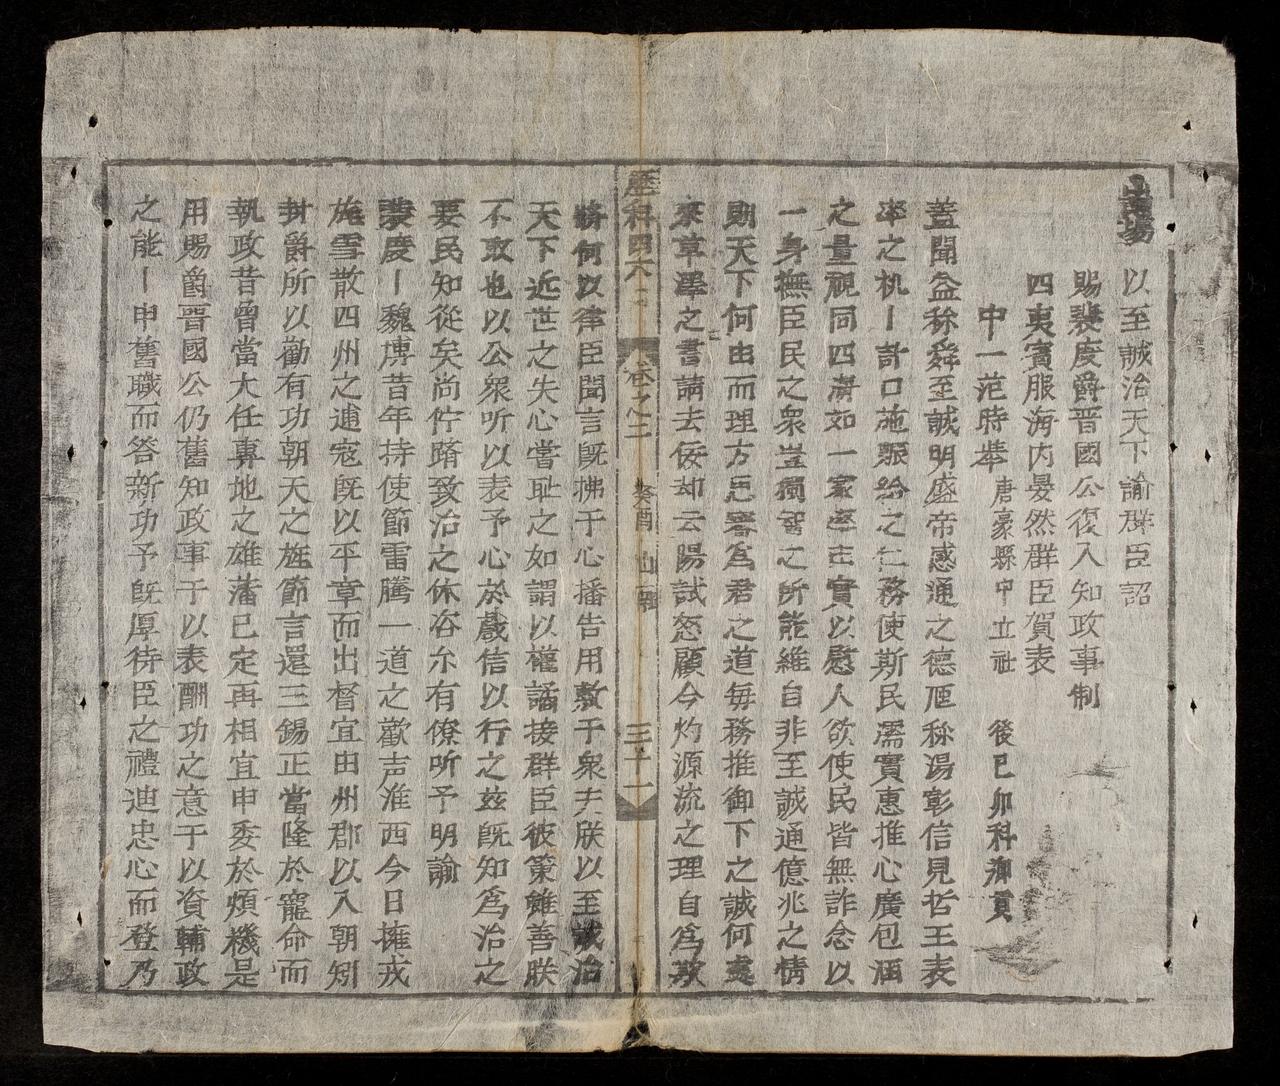 以至誠治天下諭群臣詔
賜裴度爵晋國公復入知政事制
四夷賓服海内晏然群臣賀表
中一范時舉 唐豪縣中立社 後己卯科御貢
蓋聞益称舜至誠明盛帝感通之德虺称湯彰信見哲王表
率之机丨計口施賑紛之仁務使斯民濡實惠推心廣包涵
之量視同四海如一家率吉實以慰人欲使民皆無詐念以
一身撫臣民之衆豈獨智之所能維自非至誠通億兆之情
則天下何由而理方思審爲君之道每務推御下之誠何處
來草澤之書請去佞却云陽試怒顧今灼源流之理自爲欺
歷科四六 卷之三 癸酉 山南 三十一
將何以律臣聞言既拂于心播告用敷于衆夫朕以至誠治
天下近世之失心嘗耻之如謂以權譎接群臣彼策雖善朕
不取也以公衆听以表予心於戲信以行之玆既知爲治之
要民知從矣尚佇躋致治之休咨尔有僚听予明諭
裴度丨魏博昔年持使節雷騰一道之歡声淮西今日擁戎
旌雪散四州之逋寇既以平章而出督宜由州郡以入朝矧
封爵所以勸有功朝天之旌節言還三錫正當隆於寵命而
執政昔曾當大任專地之雄藩已定再相宜申委於煩機是
用賜爵晋國公仍舊知政事于以表酬功之意于以資輔政
之能丨申舊職而答新功予既厚待臣之禮迪忠心而登乃